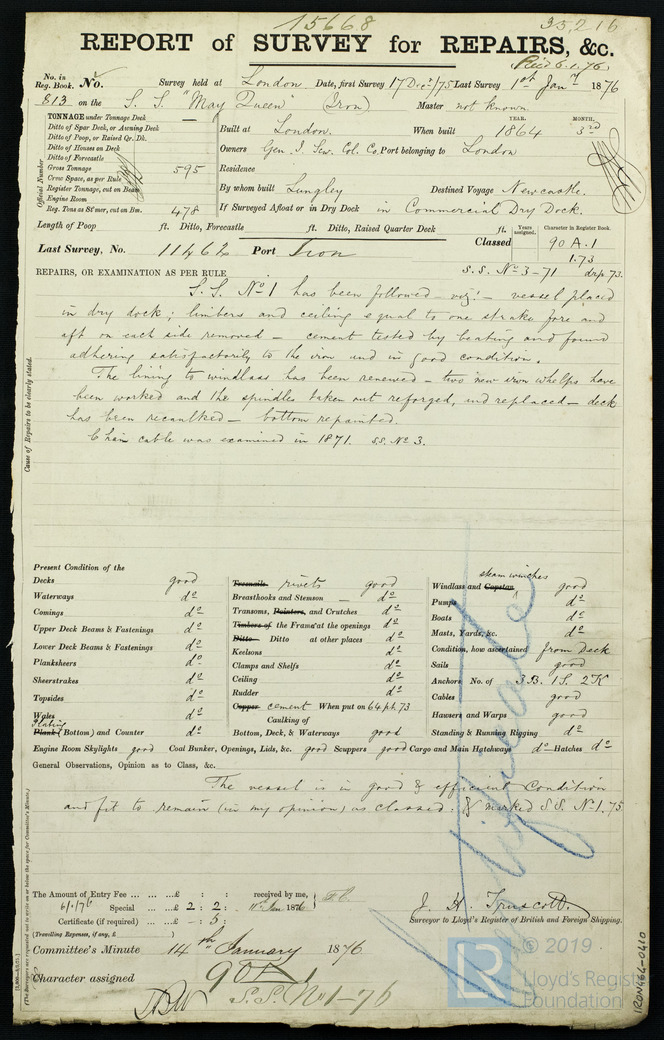 15668
35,216
REPORT of SURVEY for REPAIRS, &c.
Rec'd 6.1.76
No. in Reg. Book. No. Survey held at London. Date, first Survey 17 Decr/75 Last Survey 1st Jany 1876
813 on the S. S. "May Queen" (Iron) Master not known
TONNAGE under Tonnage Deck —
Ditto of Spar Deck, or Awning Deck
Ditto of Poop, or Raised Qr. Dk.
Ditto of Houses on Deck
Ditto of Forecastle
Gross Tonnage 595
Crew Space, as per Rule
Register Tonnage, cut on Beam
Engine Room
Reg. Tons as St'mer, cut on Bm. 478
Official Number
YEAR. MONTH.
Built at London. When built 1864 3rd
Owners Gen. I. Sew. Col. Co. Port belonging to London
Residence
By whom built Lungley Destined Voyage Newcastle.
If Surveyed Afloat or in Dry Dock in Commercial Dry Dock.
Length of Poop ft. Ditto, Forecastle ft. Ditto, Raised Quarter Deck ft.
Last Survey, No. 11462 Port Iron
Classed Years assigned. Character in Register Book.
90 A.1
1.73
S.S. No 3-71 drp 73.
REPAIRS, OR EXAMINATION AS PER RULE
S.S. No 1 has been followed – viz:– vessel placed
in dry dock; limbers and ceiling equal to one strake fore and
aft on each side removed – cement tested by beating and found
adhering satisfactorily to the iron and in good condition.
The lining to windlass has been renewed – two new iron whelps have
been worked and the spindles taken out reforged, and replaced – deck
has been recaulked – bottom repainted.
Chain cable was examined in 1871. SS. No 3.
Cause of Repairs to be clearly stated.
Present Condition of the
Decks good
Waterways do
Comings do
Upper Deck Beams & Fastenings do
Lower Deck Beams & Fastenings do
Planksheers do
Sheerstrakes do
Topsides do
Wales do
Plating
Plank (Bottom) and Counter do
Treenails rivets good
Breasthooks and Stemson do
Transoms, Pointers, and Crutches do
Timbers of the Frame at the openings do
Ditto Ditto at other places do
Keelsons do
Clamps and Shelfs do
Ceiling do
Rudder do
Copper cement When put on 64 pt. 73
Caulking of
Bottom, Deck, & Waterways good
steam winches
Windlass and Capstan good
Pumps do
Boats do
Masts, Yards, &c. do
Condition, how ascertained from Deck
Sails good
Anchors No. of 3 B. 1 S. 2 K
Cables good
Hawsers and Warps good
Standing & Running Rigging do
Engine Room Skylights good Coal Bunker, Openings, Lids, &c. good Scuppers good Cargo and Main Hatchways do Hatches do
General Observations, Opinion as to Class, &c.
The vessel is in good & efficient Condition
and fit to remain (in my opinion) as classed. & marked S.S. No 1. 75
Certificate
The Amount of Entry Fee ... ... £ : : received by me,
6/1/76 Special ... ... £ 2 : 2 : 11th Jan 1876
Certificate (if required) ... £ – : 5 :
(Travelling Expenses, if any, £ )
J. H. Truscott.
Surveyor to Lloyd's Register of British and Foreign Shipping.
Committee's Minute 14th January 1876
Character assigned 90 A 1
S.S. No 1-76
© 2019
LR
Lloyd's Register
Foundation
IRON464-0410